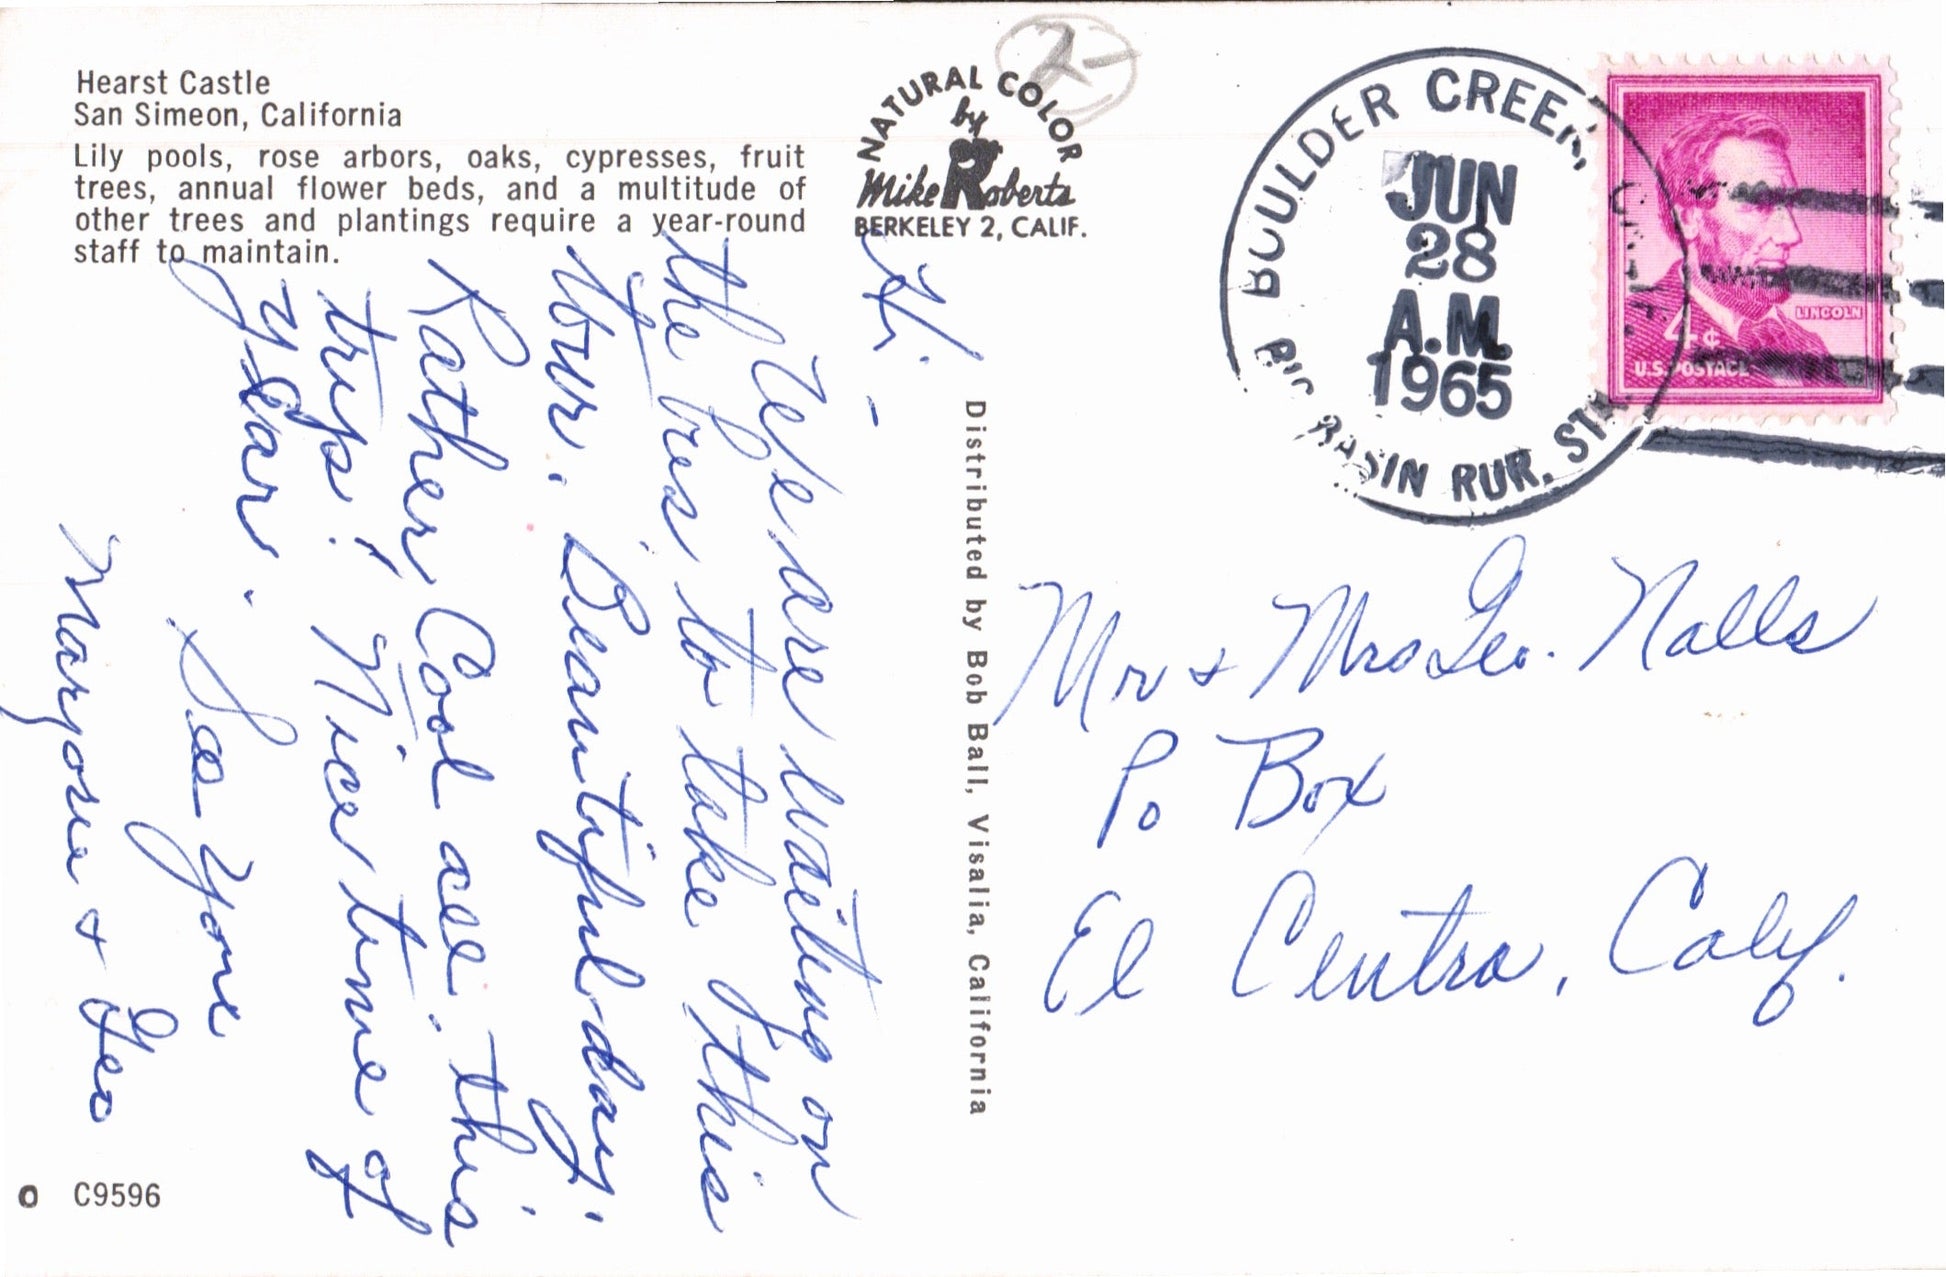 Hearst Castle
San Simeon, California
Lily pools, rose arbors, oaks, cypresses, fruit
trees, annual flower beds, and a multitude of
other trees and plantings require a year-round
staff to maintain.
NATURAL COLOR
by
Mike Roberts
BERKELEY 2, CALIF.
2-
BOULDER CREEK, CALIF.
JUN
28
A.M.
1965
BIG BASIN RUR. STA.
LINCOLN
4¢
U.S. POSTAGE
Hi -
We are waiting on
the bus to take this
tour. Beautiful day.
Rather Cool all this
trip! Nice time of
year.
See you
Marjorie & Geo
Distributed by Bob Ball, Visalia, California
Mr & Mrs Geo. Nalls
Po Box
El Centro, Calif.
O C9596